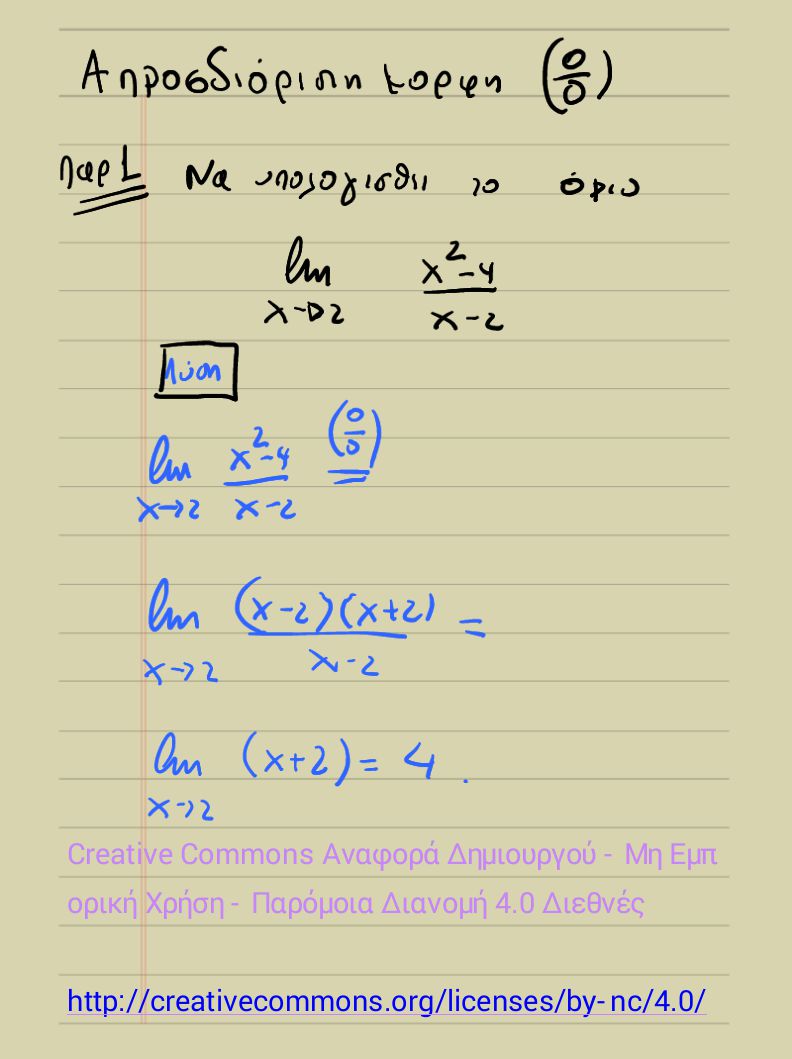 Απροσδιόριστη μορφη (0/0)
Παρ 1 Να υπολογισθει το όριο
lim x→2 x²-4 / x-2
Λύση
lim x→2 x²-4 / x-2 (0/0)
lim x→2 (x-2)(x+2) / x-2 =
lim x→2 (x+2) = 4 .
Creative Commons Αναφορά Δημιουργού - Μη Εμπ
ορική Χρήση - Παρόμοια Διανομή 4.0 Διεθνές
http://creativecommons.org/licenses/by-nc/4.0/